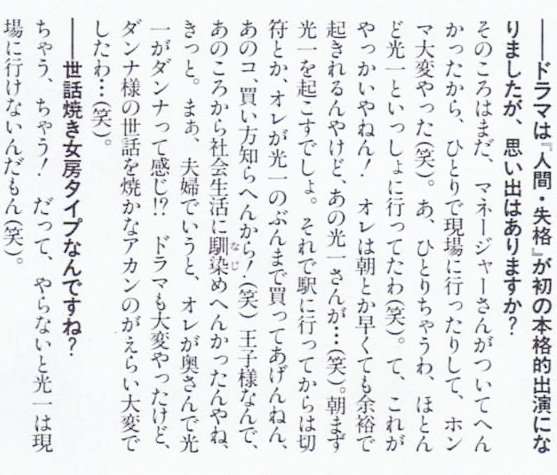 ――ドラマは『人間・失格』が初の本格的出演にな
りましたが、思い出はありますか？
そのころはまだ、マネージャーさんがついてへん
かったから、ひとりで現場に行ったりして、ホン
マ大変やった(笑)。あ、ひとりちゃうわ、ほとん
ど光一といっしょに行ってたわ(笑)。て、これが
やっかいやねん！　オレは朝とか早くても余裕で
起きれるんやけど、あの光一さんが…(笑)。朝まず
光一を起こすでしょ。それで駅に行ってからは切
符とか、オレが光一のぶんまで買ってあげんねん、
あのコ、買い方知らへんから！(笑) 王子様なんで、
あのころから社会生活に馴染めへんかったんやね、
なじ
きっと。まぁ、夫婦でいうと、オレが奥さんで光
一がダンナって感じ!?　ドラマも大変やったけど、
ダンナ様の世話を焼かなアカンのがえらい大変で
したわ…(笑)。
――世話焼き女房タイプなんですね？
ちゃう、ちゃう！　だって、やらないと光一は現
場に行けないんだもん(笑)。